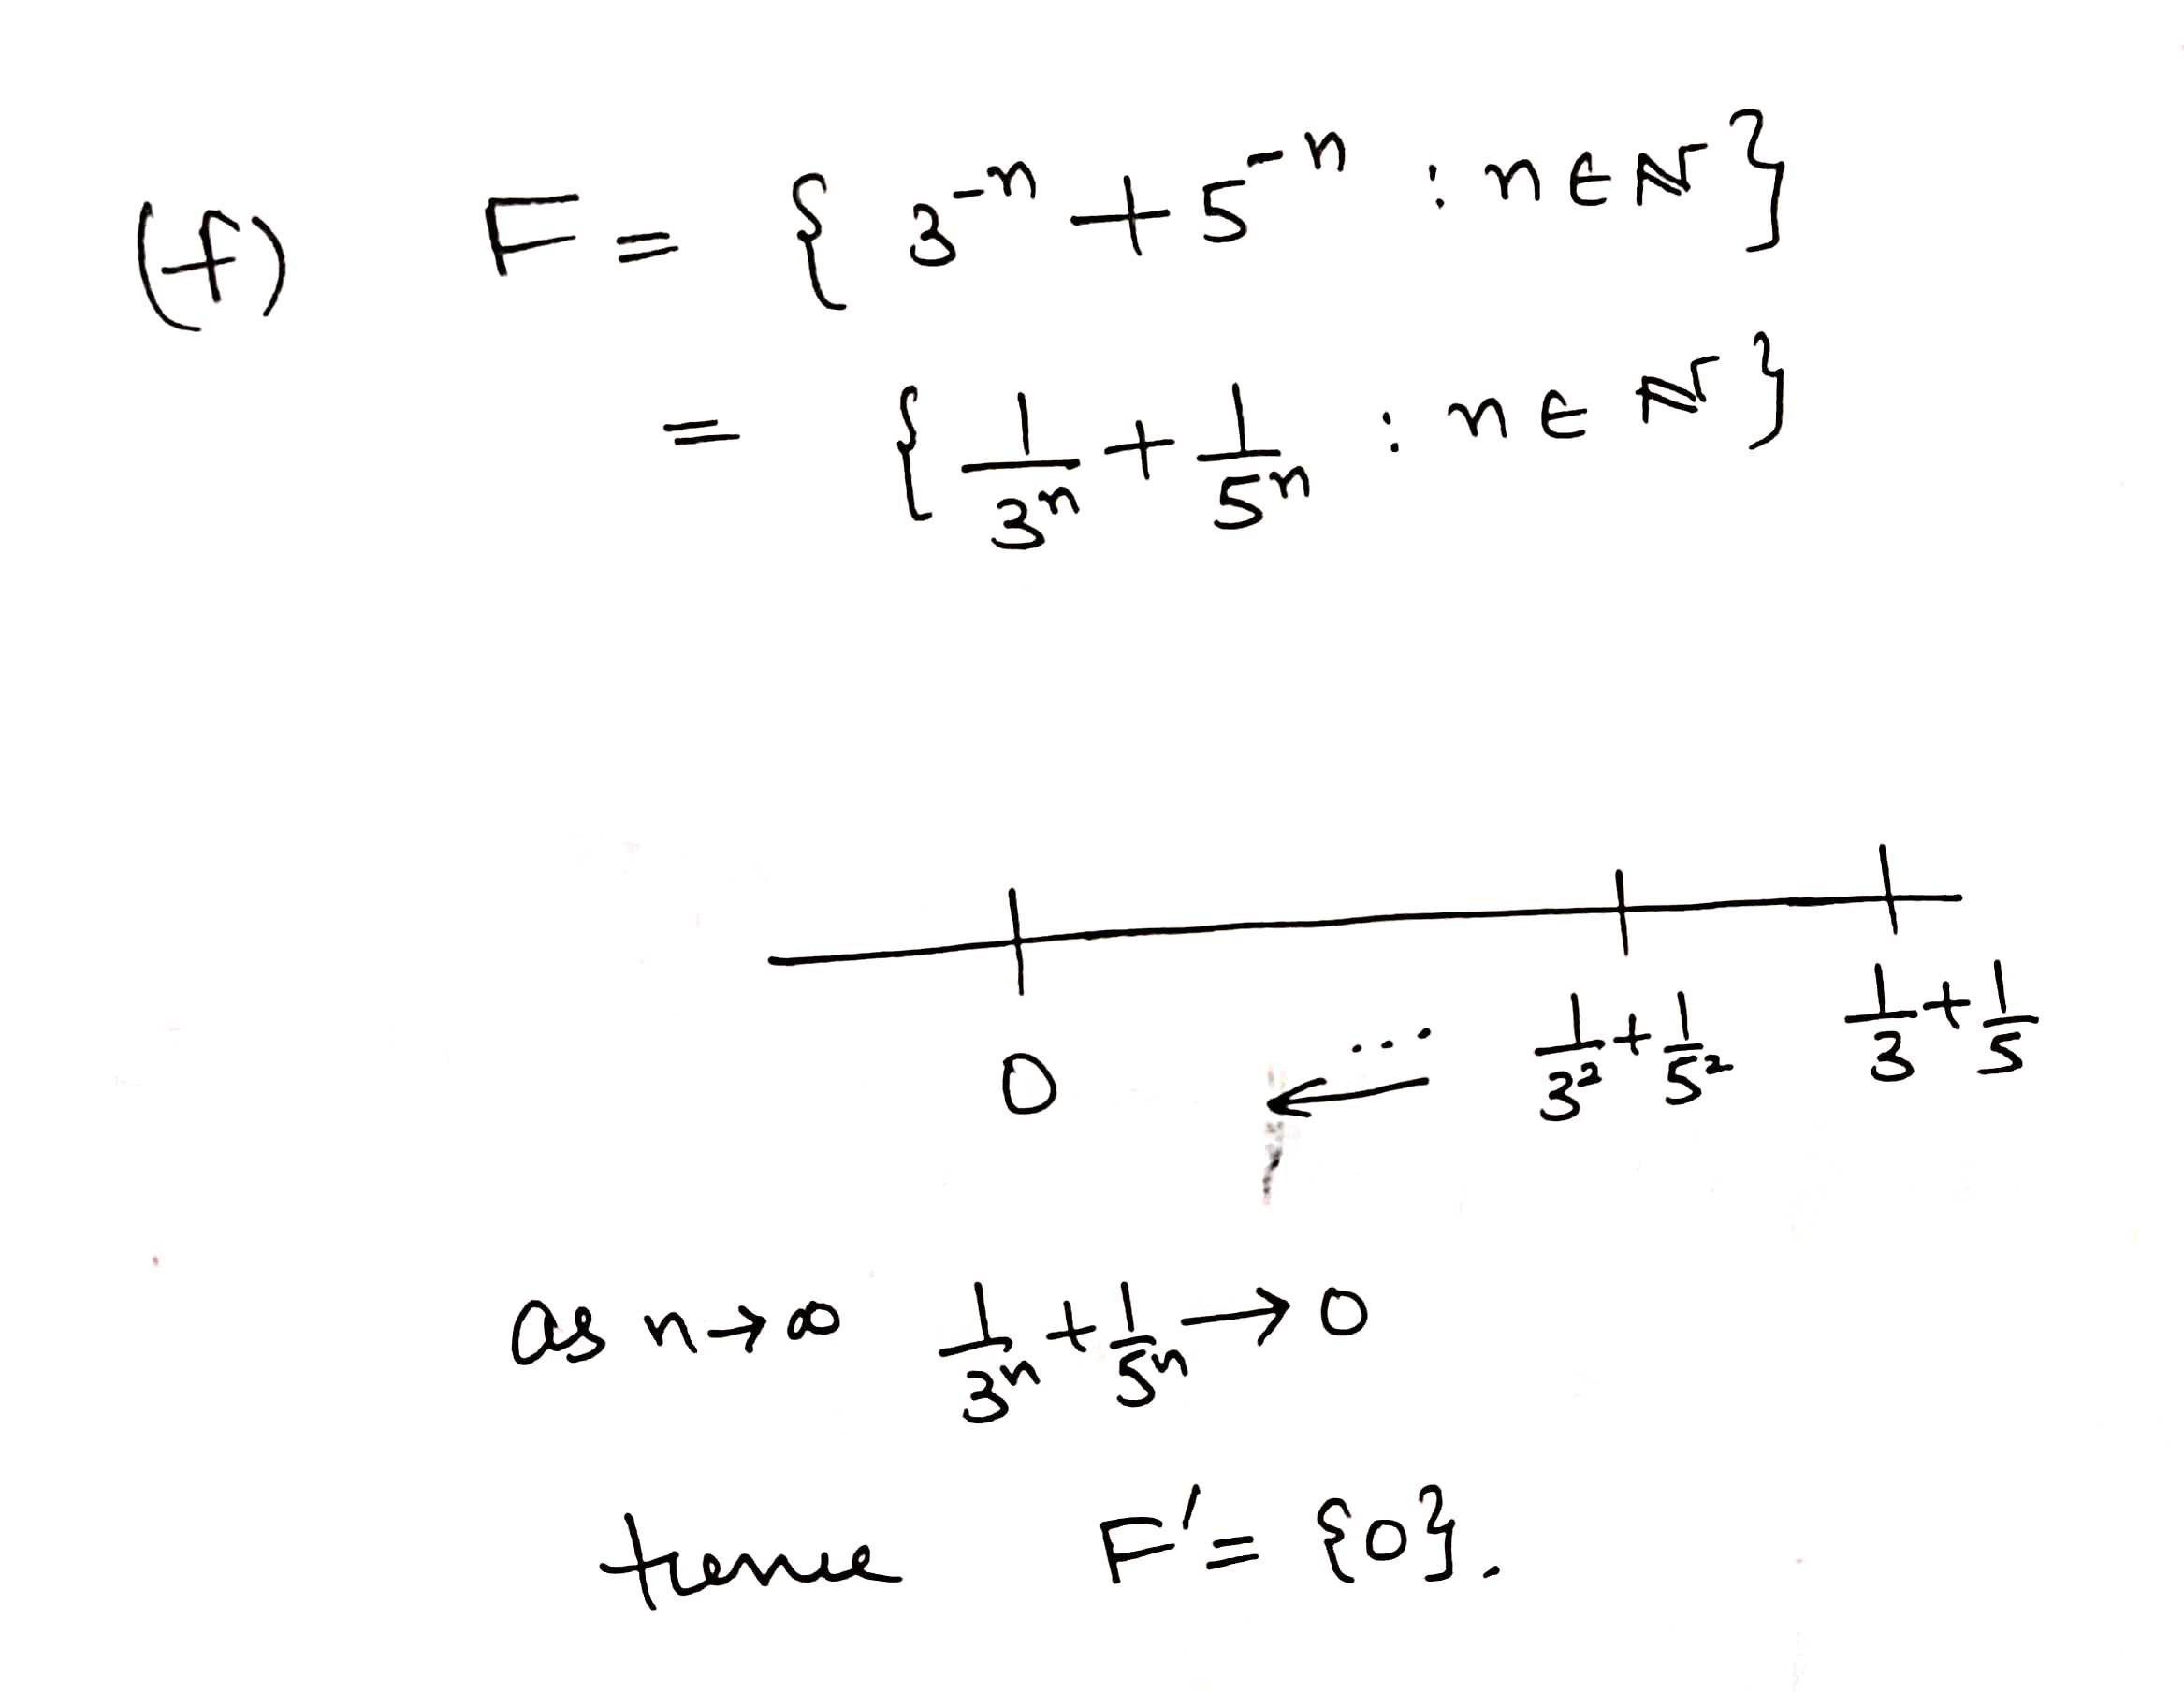 (f) F = { 3⁻ⁿ + 5⁻ⁿ : n ∈ ℕ }
= { 1/3ⁿ + 1/5ⁿ : n ∈ ℕ }
0 ← ... 1/3² + 1/5² 1/3 + 1/5
as n → ∞ 1/3ⁿ + 1/5ⁿ → 0
Hence F' = {0}.